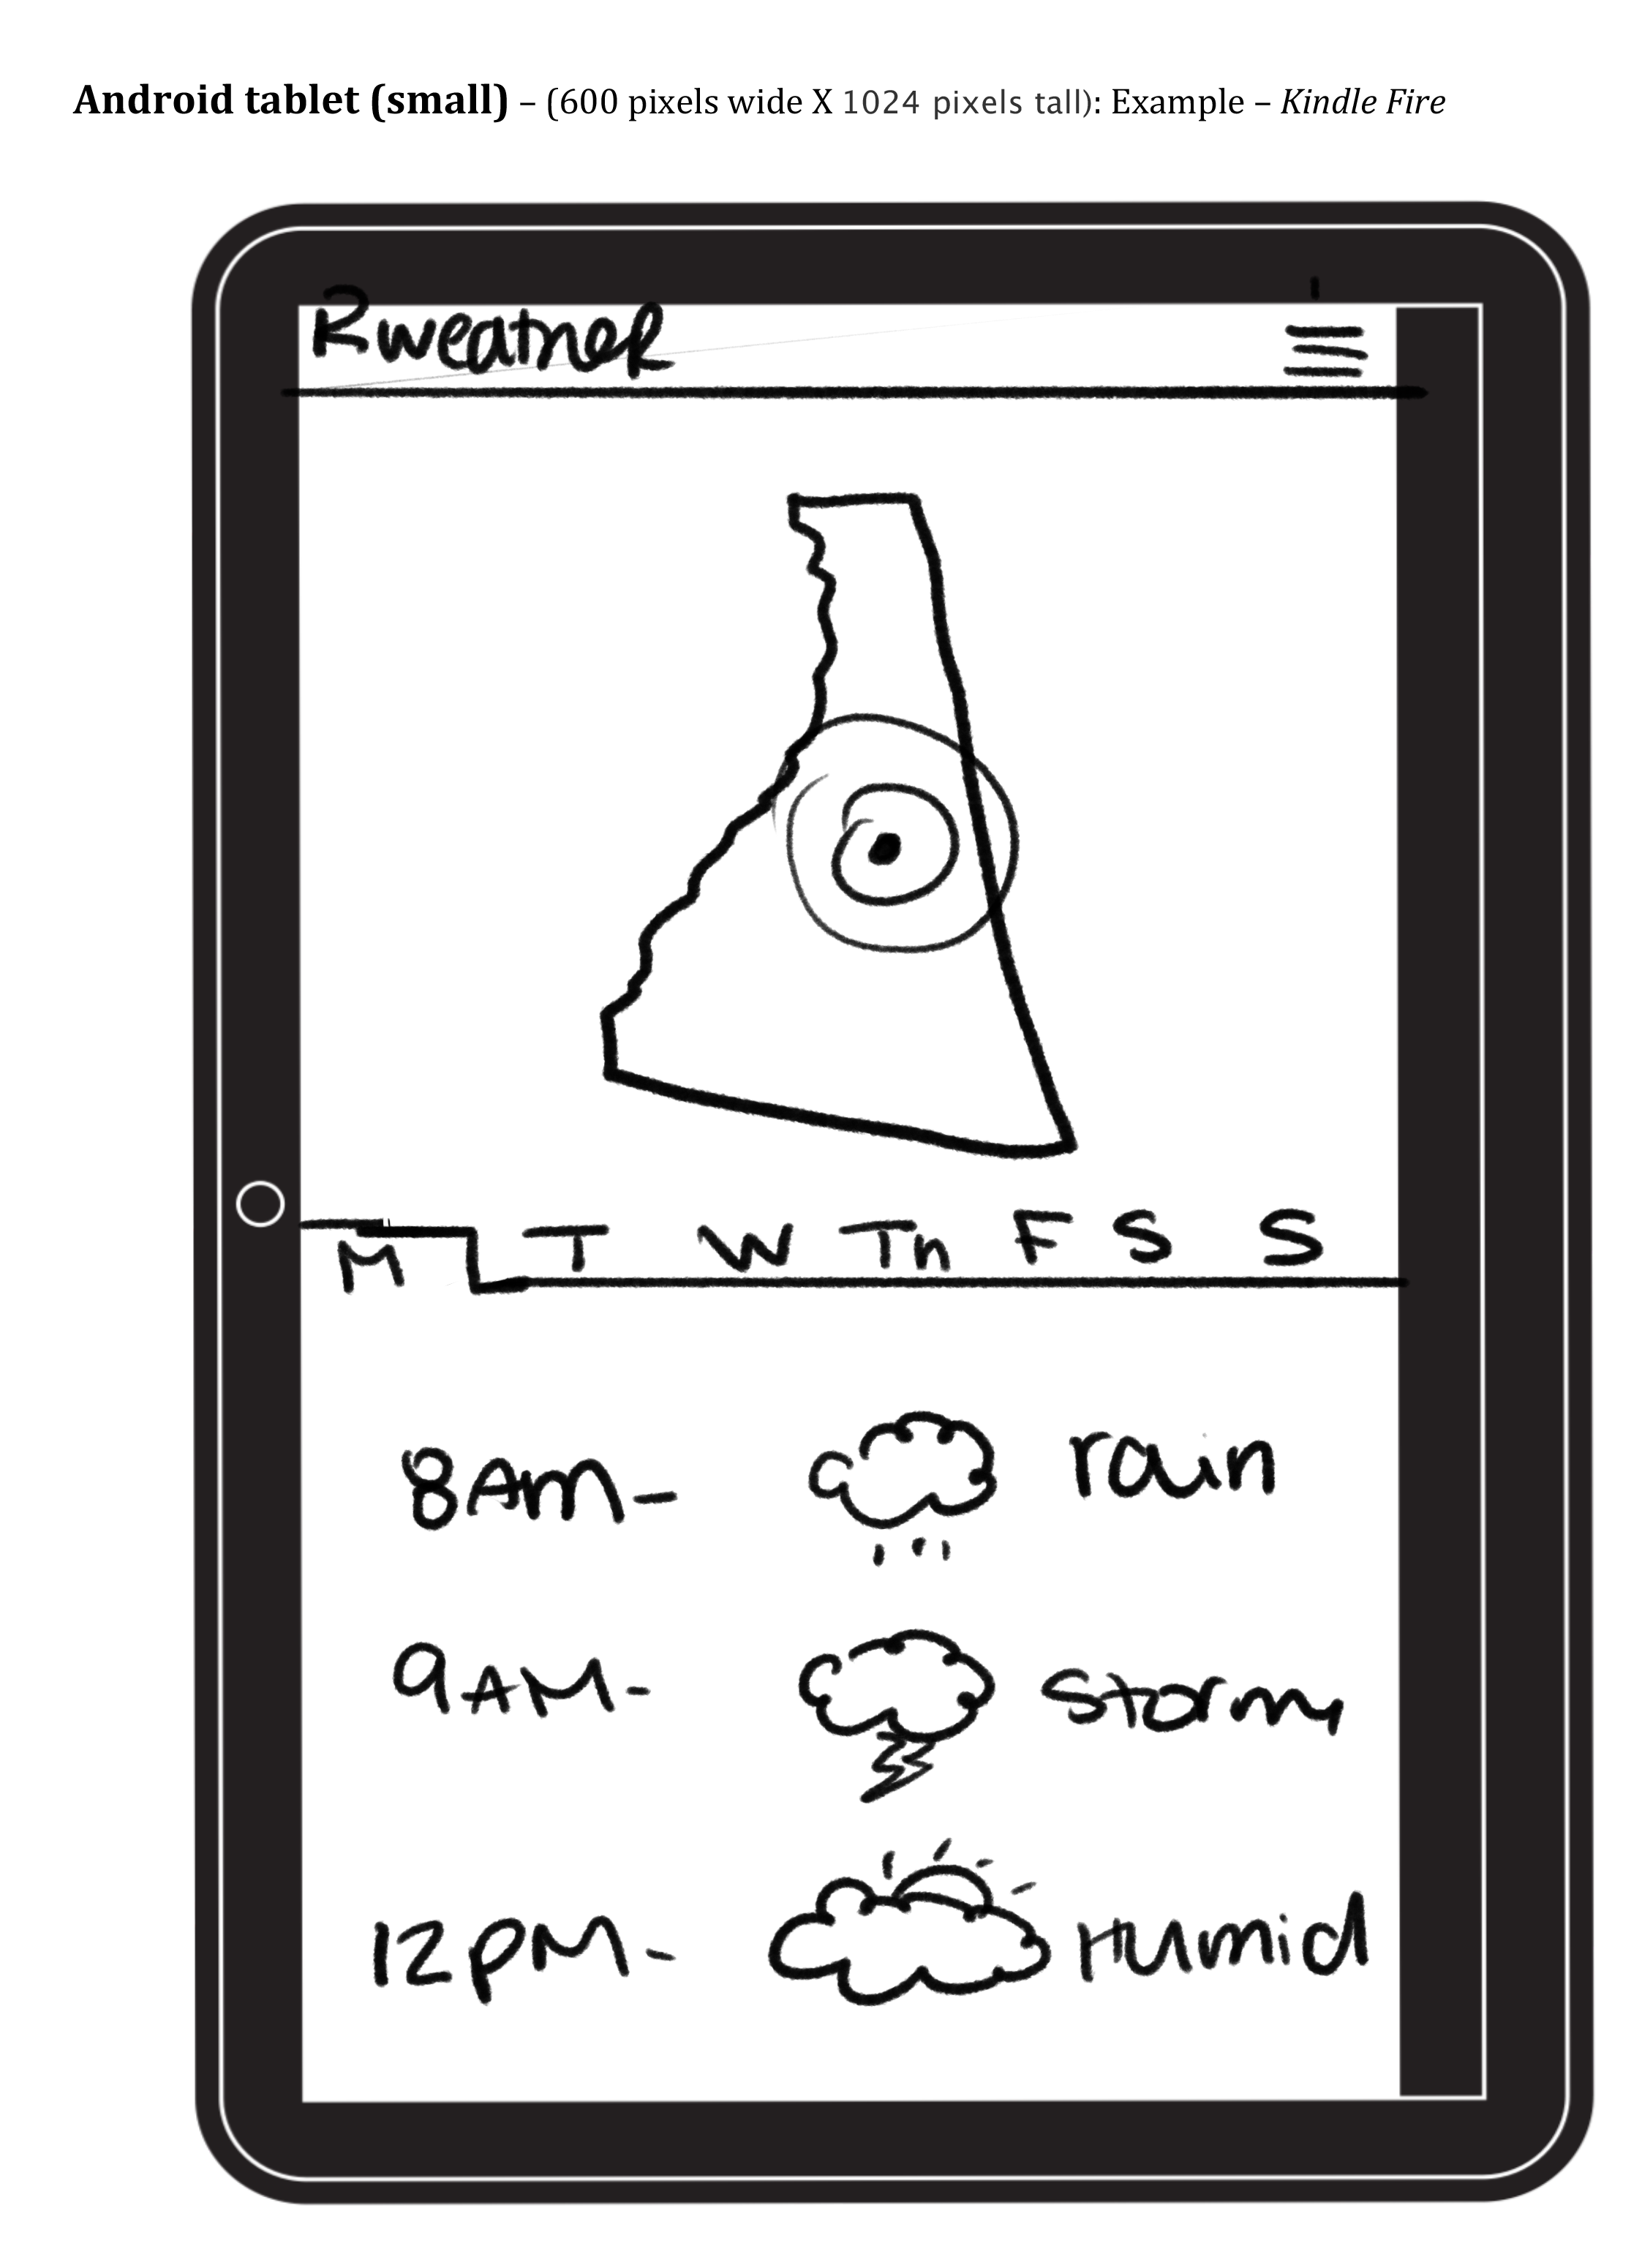 Android tablet (small) – (600 pixels wide X 1024 pixels tall): Example – Kindle Fire
Rweather
M T W Th F S S
8AM- rain
9AM- storm
12PM- Humid